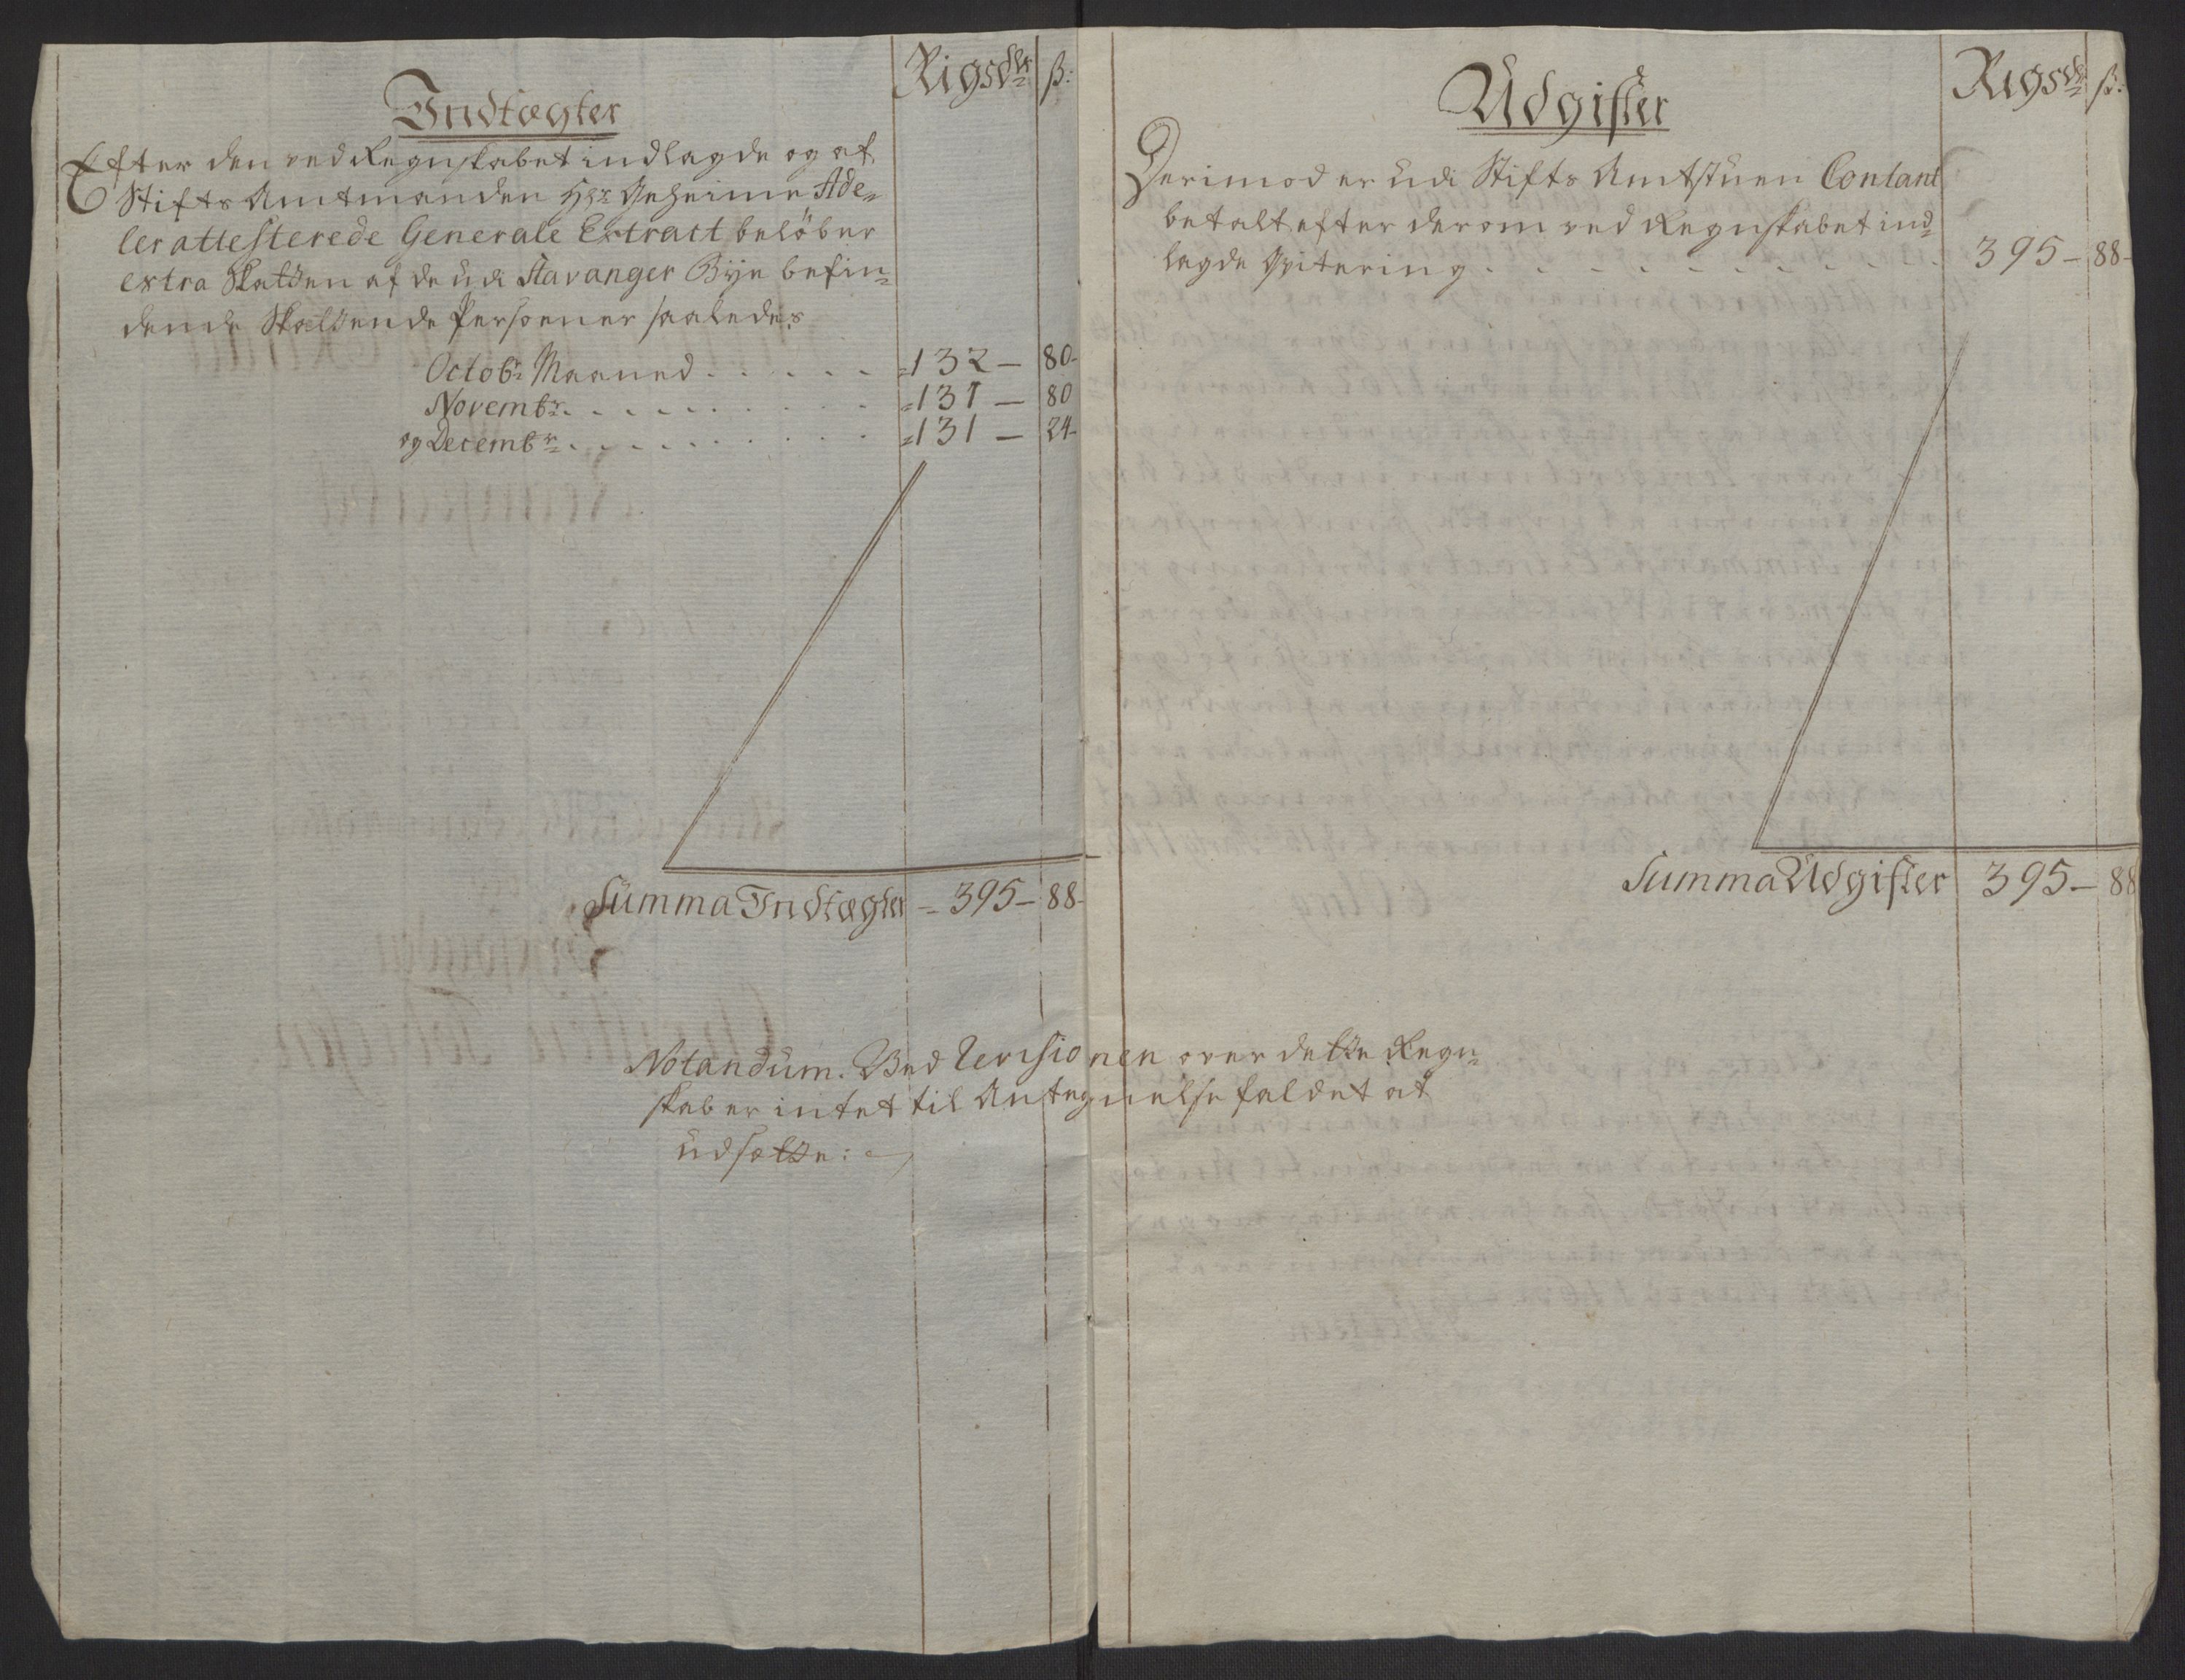 Rigsdlr ß:
Indtægter
Efter den ved Regnskabet indlagde og af
Stifts Amtmanden Hr: Geheime Ade=
ler attesterede Generale Extract beløber
extra Skatten af de udi Stavanger Bÿe befin=
dende Skattende Persoener saaledes
Octobr: Maaned . . . . . =132 — 80-
Novembr: . . . . . . . . . =131 — 80
og Decembr: . . . . . . . . . =131 — 24-
Summa Indtægter = 395 — 88-
Rigsdlr ß:
Udgifter
Derimod er udi Stifts Amtstuen Contant
betalt efter derom ved Regnskabet ind=
lagde Qvitering . . . . . . . . . 395 — 88-
Summa Udgifter 395 — 88
Notandum. Ved Revisionen over dette Regn=
skab er intet til Antegnelse faldet at
udsætte: